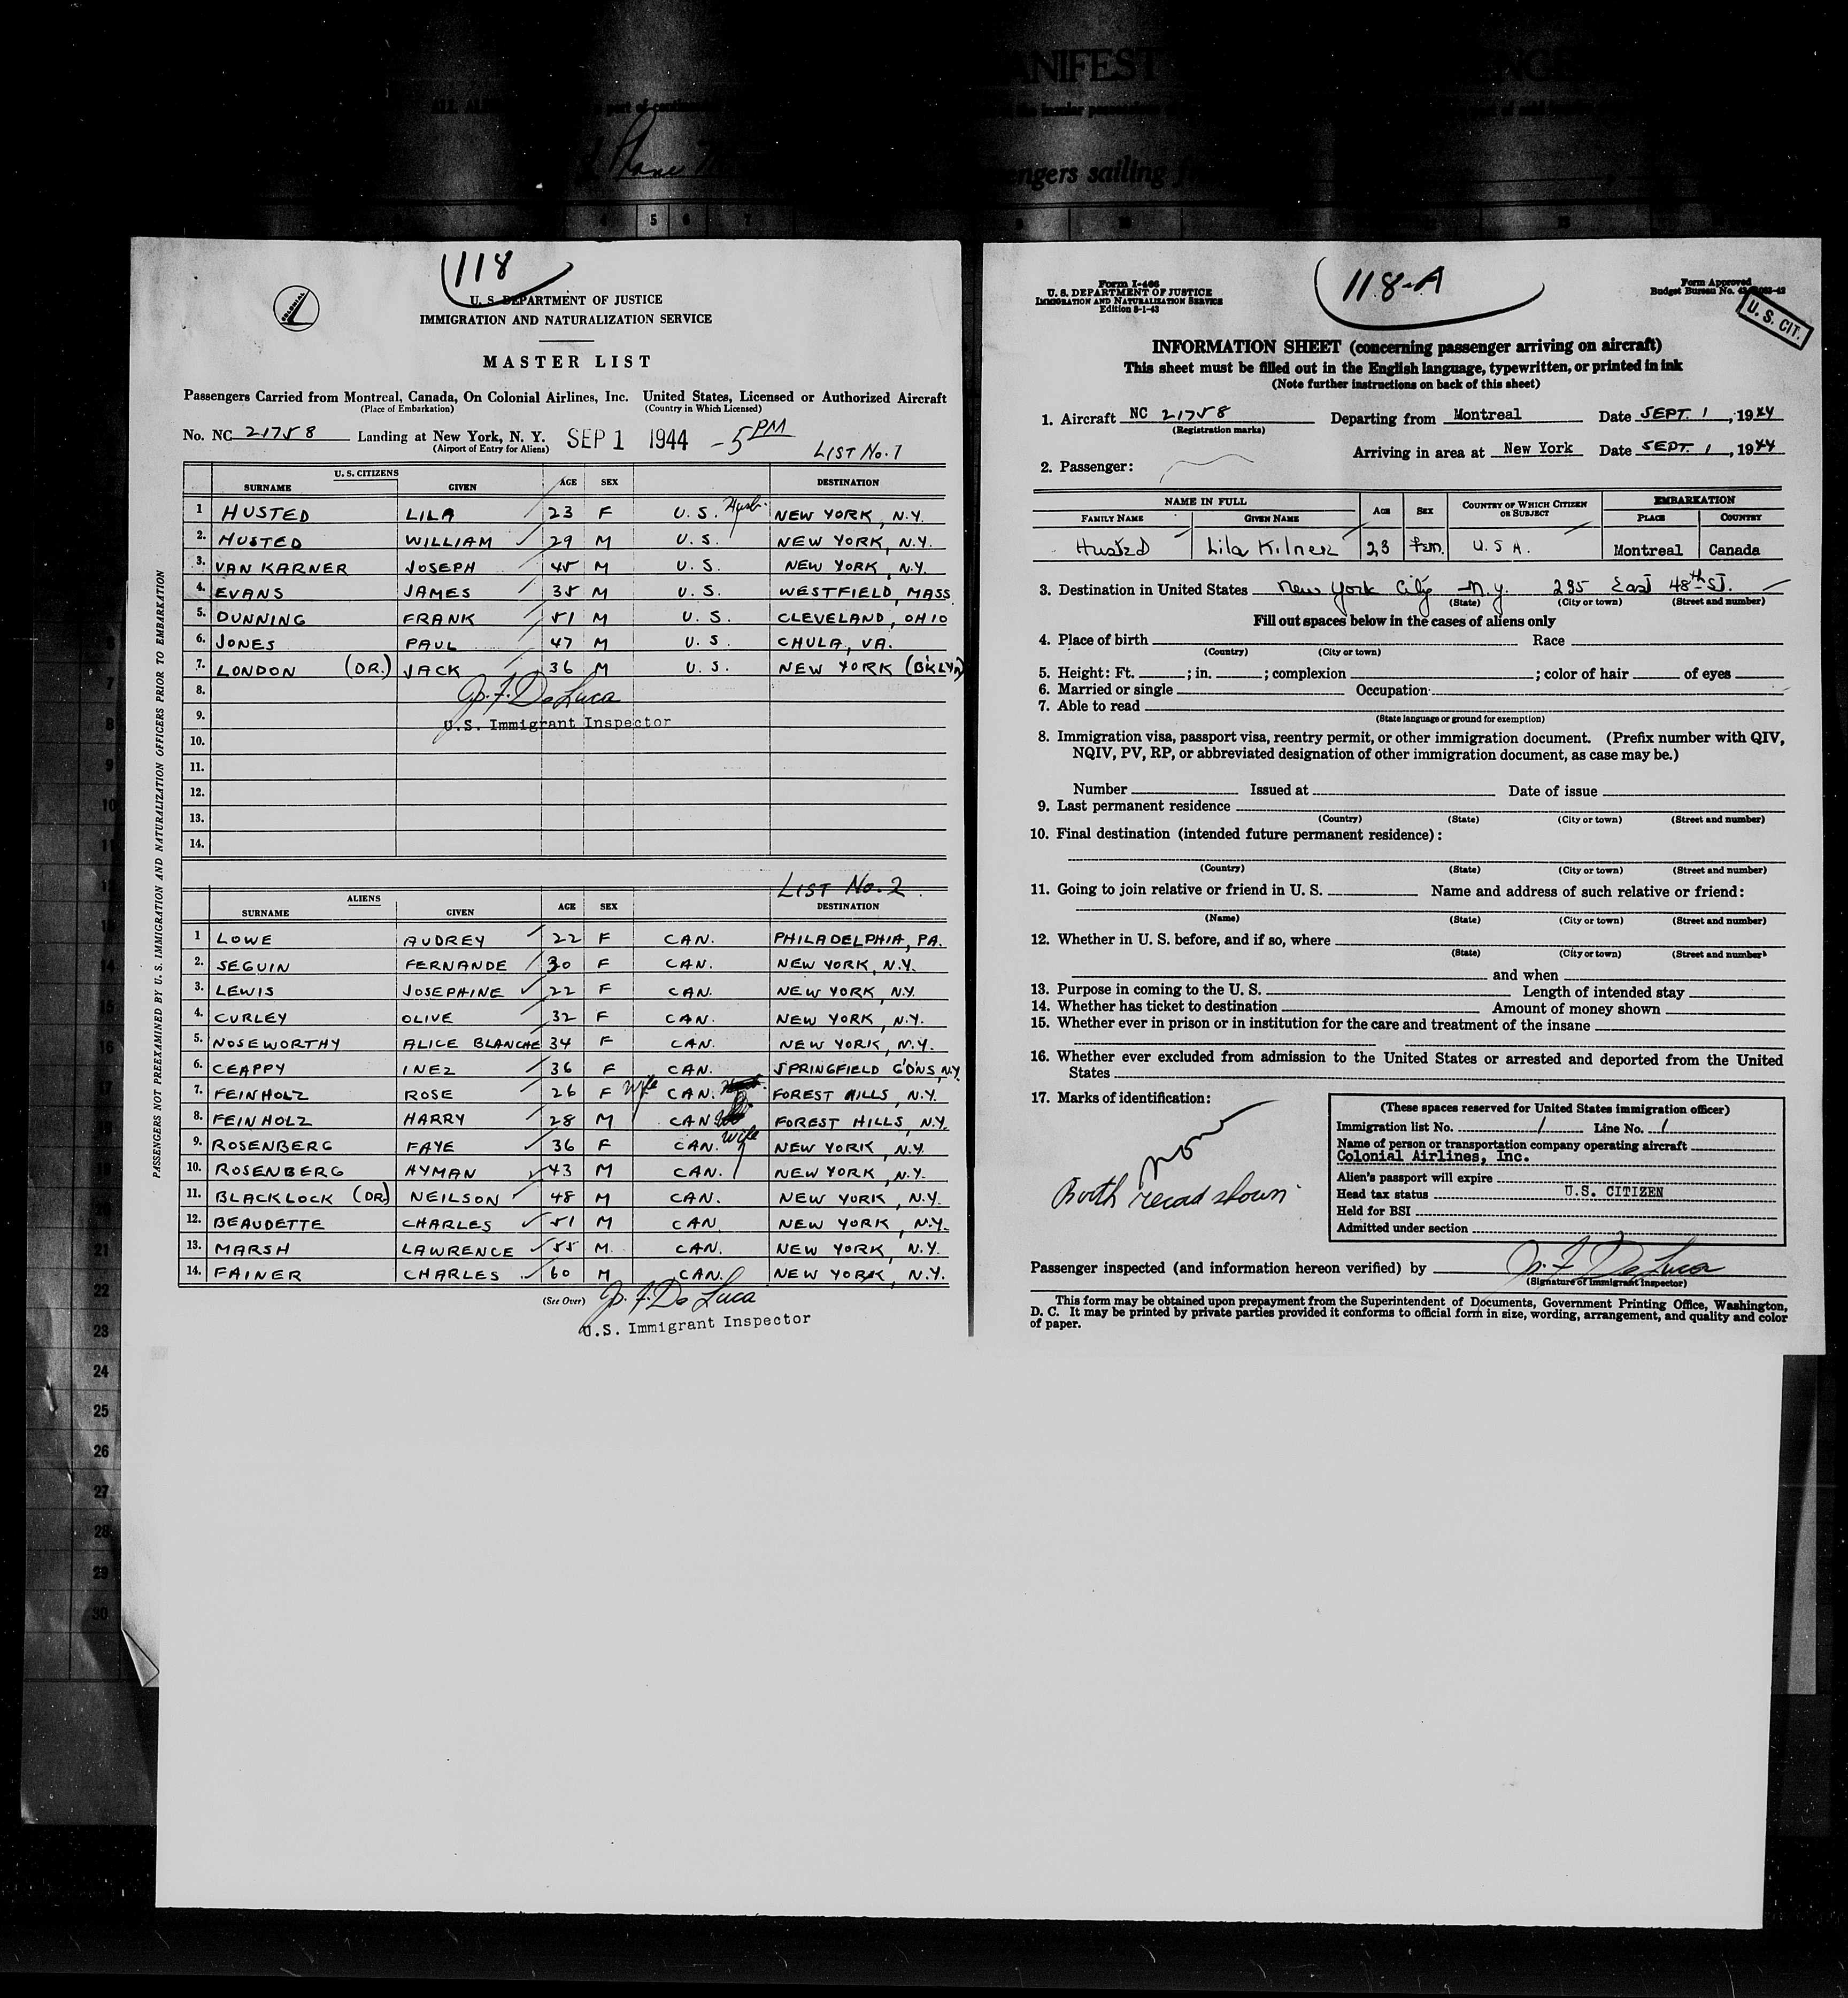 ANIFEST
engers sailing
118
COLONIAL
U. S. DEPARTMENT OF JUSTICE
IMMIGRATION AND NATURALIZATION SERVICE
MASTER LIST
Passengers Carried from Montreal, Canada, On Colonial Airlines, Inc. United States, Licensed or Authorized Aircraft
(Place of Embarkation) (Country in Which Licensed)
No. NC 21758 Landing at New York, N. Y. SEP 1 1944 - 5 PM
(Airport of Entry for Aliens) LIST No. 1
U. S. CITIZENS
SURNAME GIVEN AGE SEX DESTINATION
1 HUSTED LILA 23 F U. S. Husb. NEW YORK, N.Y.
2. HUSTED WILLIAM 29 M U. S. NEW YORK, N.Y.
3. VAN KARNER JOSEPH 45 M U. S. NEW YORK, N.Y.
4. EVANS JAMES 35 M U. S. WESTFIELD, MASS
5. DUNNING FRANK 51 M U. S. CLEVELAND, OHIO
6. JONES PAUL 47 M U. S CHULA, VA.
7. LONDON (DR.) JACK 36 M U. S. NEW YORK (B'KLYN)
8.
J. F. De Luca
9.
U.S. Immigrant Inspector
10.
11.
12.
13.
14.
LIST No. 2
ALIENS
SURNAME GIVEN AGE SEX DESTINATION
1 LOWE AUDREY 22 F CAN. PHILADELPHIA, PA.
2. SEGUIN FERNANDE 30 F CAN. NEW YORK, N.Y.
3. LEWIS JOSEPHINE 22 F CAN. NEW YORK, N.Y.
4. CURLEY OLIVE 32 F CAN. NEW YORK, N.Y.
5. NOSEWORTHY ALICE BLANCHE 34 F CAN. NEW YORK, N.Y.
6. CEAPPY INEZ 36 F CAN. SPRINGFIELD G'D'NS, N.Y.
7. FEINHOLZ ROSE 26 F wife CAN. FOREST HILLS, N.Y.
8. FEINHOLZ HARRY 28 M CAN FOREST HILLS, N.Y.
9. ROSENBERG FAYE 36 F CAN. wife NEW YORK, N.Y.
10. ROSENBERG HYMAN 43 M CAN. NEW YORK, N.Y.
11. BLACKLOCK (DR.) NEILSON 48 M CAN. NEW YORK, N.Y.
12. BEAUDETTE CHARLES 51 M CAN NEW YORK, N.Y.
13. MARSH LAWRENCE 55 M. CAN. NEW YORK, N.Y.
14. FAINER CHARLES 60 M CAN. NEW YORK, N.Y.
(See Over) J. F. De Luca
U.S. Immigrant Inspector
PASSENGERS NOT PREEXAMINED BY U. S. IMMIGRATION AND NATURALIZATION OFFICERS PRIOR TO EMBARKATION
118-A
Form I-466
U. S. DEPARTMENT OF JUSTICE
IMMIGRATION AND NATURALIZATION SERVICE
Edition 5-1-43
Form Approved
Budget Bureau No.
U. S. CIT.
INFORMATION SHEET (concerning passenger arriving on aircraft)
This sheet must be filled out in the English language, typewritten, or printed in ink
(Note further instructions on back of this sheet)
1. Aircraft NC 21758 Departing from Montreal Date SEPT. 1, 1944
(Registration marks)
Arriving in area at New York Date SEPT. 1, 1944
2. Passenger:
NAME IN FULL AGE SEX COUNTRY OF WHICH CITIZEN OR SUBJECT EMBARKATION
FAMILY NAME GIVEN NAME PLACE COUNTRY
Husted Lila Kilner 23 Fem. U. S A. Montreal Canada
3. Destination in United States New York City N.Y. 235 East 48th St.
(State) (City or town) (Street and number)
Fill out spaces below in the cases of aliens only
4. Place of birth Race
(Country) (City or town)
5. Height: Ft. ; in. ; complexion ; color of hair of eyes
6. Married or single Occupation
7. Able to read
(State language or ground for exemption)
8. Immigration visa, passport visa, reentry permit, or other immigration document. (Prefix number with QIV,
NQIV, PV, RP, or abbreviated designation of other immigration document, as case may be.)
Number Issued at Date of issue
9. Last permanent residence
(Country) (State) (City or town) (Street and number)
10. Final destination (intended future permanent residence):
(Country) (State) (City or town) (Street and number)
11. Going to join relative or friend in U. S. Name and address of such relative or friend:
(Name) (State) (City or town) (Street and number)
12. Whether in U. S. before, and if so, where
(State) (City or town) (Street and number)
and when
13. Purpose in coming to the U. S. Length of intended stay
14. Whether has ticket to destination Amount of money shown
15. Whether ever in prison or in institution for the care and treatment of the insane
16. Whether ever excluded from admission to the United States or arrested and deported from the United
States
17. Marks of identification:
Birth record shown
(These spaces reserved for United States immigration officer)
Immigration list No. 1 Line No. 1
Name of person or transportation company operating aircraft
Colonial Airlines, Inc.
Alien's passport will expire
Head tax status U.S. CITIZEN
Held for BSI
Admitted under section
Passenger inspected (and information hereon verified) by J. F. De Luca
(Signature of Immigrant Inspector)
This form may be obtained upon prepayment from the Superintendent of Documents, Government Printing Office, Washington,
D. C. It may be printed by private parties provided it conforms to official form in size, wording, arrangement, and quality and color
of paper.
22
23
24
25
26
27
28
29
30